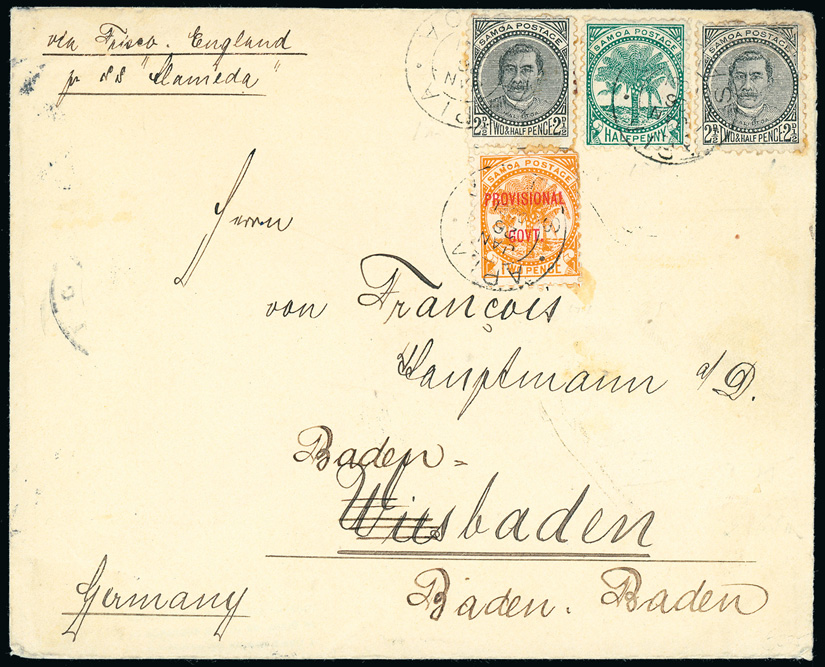 via Frisco. England
pr SS "Alameda"
SAMOA POSTAGE
2D½ TWO & HALF PENCE 2D½
SAMOA POSTAGE
HALF PENNY
SAMOA POSTAGE
2D½ TWO & HALF PENCE 2D½
SAMOA POSTAGE
PROVISIONAL
GOVT
TWO PENCE
APIA
JAN
Herrn
von François
Hauptmann a/D.
Baden-
Wiesbaden
Germany
Baden-Baden